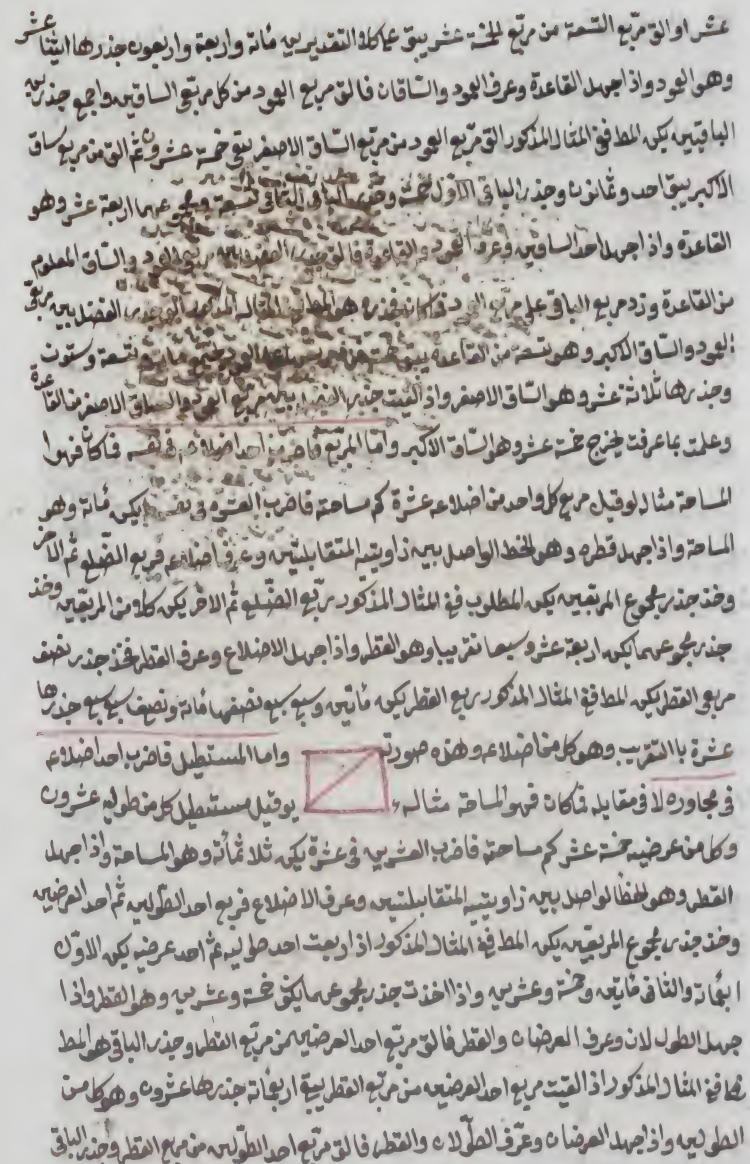 عشر او الق مربع التسعة من مربع الخمسة عشر يبق على كلا التقديرين مائة واربعة واربعون جذرها اثنا عشر
وهو العمود واذا جهل القاعدة وعرف العمود والساقان فالق مربع العمود من كل مربعي الساقين واجمع جذري
الباقيين يكن المط ففي المثال المذكور الق مربع العمود من مربع الساق الاصغر يبق خمسة عشرون ثم الق من مربع ساق
الاكبر يبق احد وثمانون وجذر الباقي الاول خمسة وجذر الباقي الثاني تسعة ومجموعهما اربعة عشر وهو
القاعدة واذا جهل احد الساقين وعرف العمود والقاعدة فالق جذر الفضل بين مربعي العمود والساق المعلوم
من القاعدة وزد مربع الباقي على مربع العمود فما كان فجذره هو المط ففي المثال المذكور الق جذر الفضل بين مربعي
العمود والساق الاكبر وهو تسعة من القاعدة يبق خمسة مائة وتسعة وستون
وجذرها ثلاثة عشر وهو الساق الاصغر واذا القيت جذر الفضل بين مربع العمود والساق الاصغر من القاعدة
وعلمت بما عرفت يخرج خمسة عشر وهو الساق الاكبر واما المربع فاضرب احد اضلاعه في نفسه فما كان فهوا
المساحة مثال لو قيل مربع كل واحد من اضلاعه عشرة كم مساحته فاضرب العشرة في نفسها يكن مائة وهو
المساحة واذا جهل قطره وهو الخط الواصل بين زاويتيه المتقابلتين وعرف اضلاعه فربع الضلع ثم الاخر
وخذ جذر مجموع المربعين يكن المطلوب ففي المثال المذكور ربع الضلع ثم الاخر يكن كلا من المربعين وخذ
جذر مجموعهما يكن اربعة عشر وسبعا تقريبا وهو القطر واذا جهل الاضلاع وعرف القطر فخذ جذر نصف
مربعى القطر يكن المط ففي المثال المذكور ربع القطر يكن مأتين وسبع سبع نصفها مائة ونصف سبع سبع جذرها
عشرة باالتقريب وهو كل من اضلاعه وهذه صورته واما المستطيل فاضرب احد اضلاعه
في مجاوره لا في مقابله فما كان فهو المساحة مثاله لو قيل مستطيل كل من طوليه عشرون
وكل من عرضيه خمسة عشر كم مساحته فاضرب العشرين في عشرة يكن ثلاثمائة وهو المساحة واذا جهل
القطر وهو الخط الواصل بين زاويتيه المتقابلتين وعرف الاضلاع فربع احد الطولين ثم احد العرضين
وخذ جذر مجموع المربعين يكن المط ففي المثال المذكور اذا ربعت احد طوليه ثم احد عرضيه يكن الاول
اربعمائة والثاني مأتين وخمسة وعشرين واذا اخذت جذر مجموعهما يكن خمسة وعشرين وهو القطر واذا
جهل الطولان وعرف العرضان والقطر فالق مربع احد العرضين من مربع القطر وجذر الباقي هو المط
ففي المثال المذكور اذا القيت مربع احد العرضين من مربع القطر يبق اربعمائة جذرها عشرون وهو كل من
الطولين واذا جهل العرضان وعرف الطولان والقطر فالق مربع احد الطولين من مربع القطر وجذر الباقي